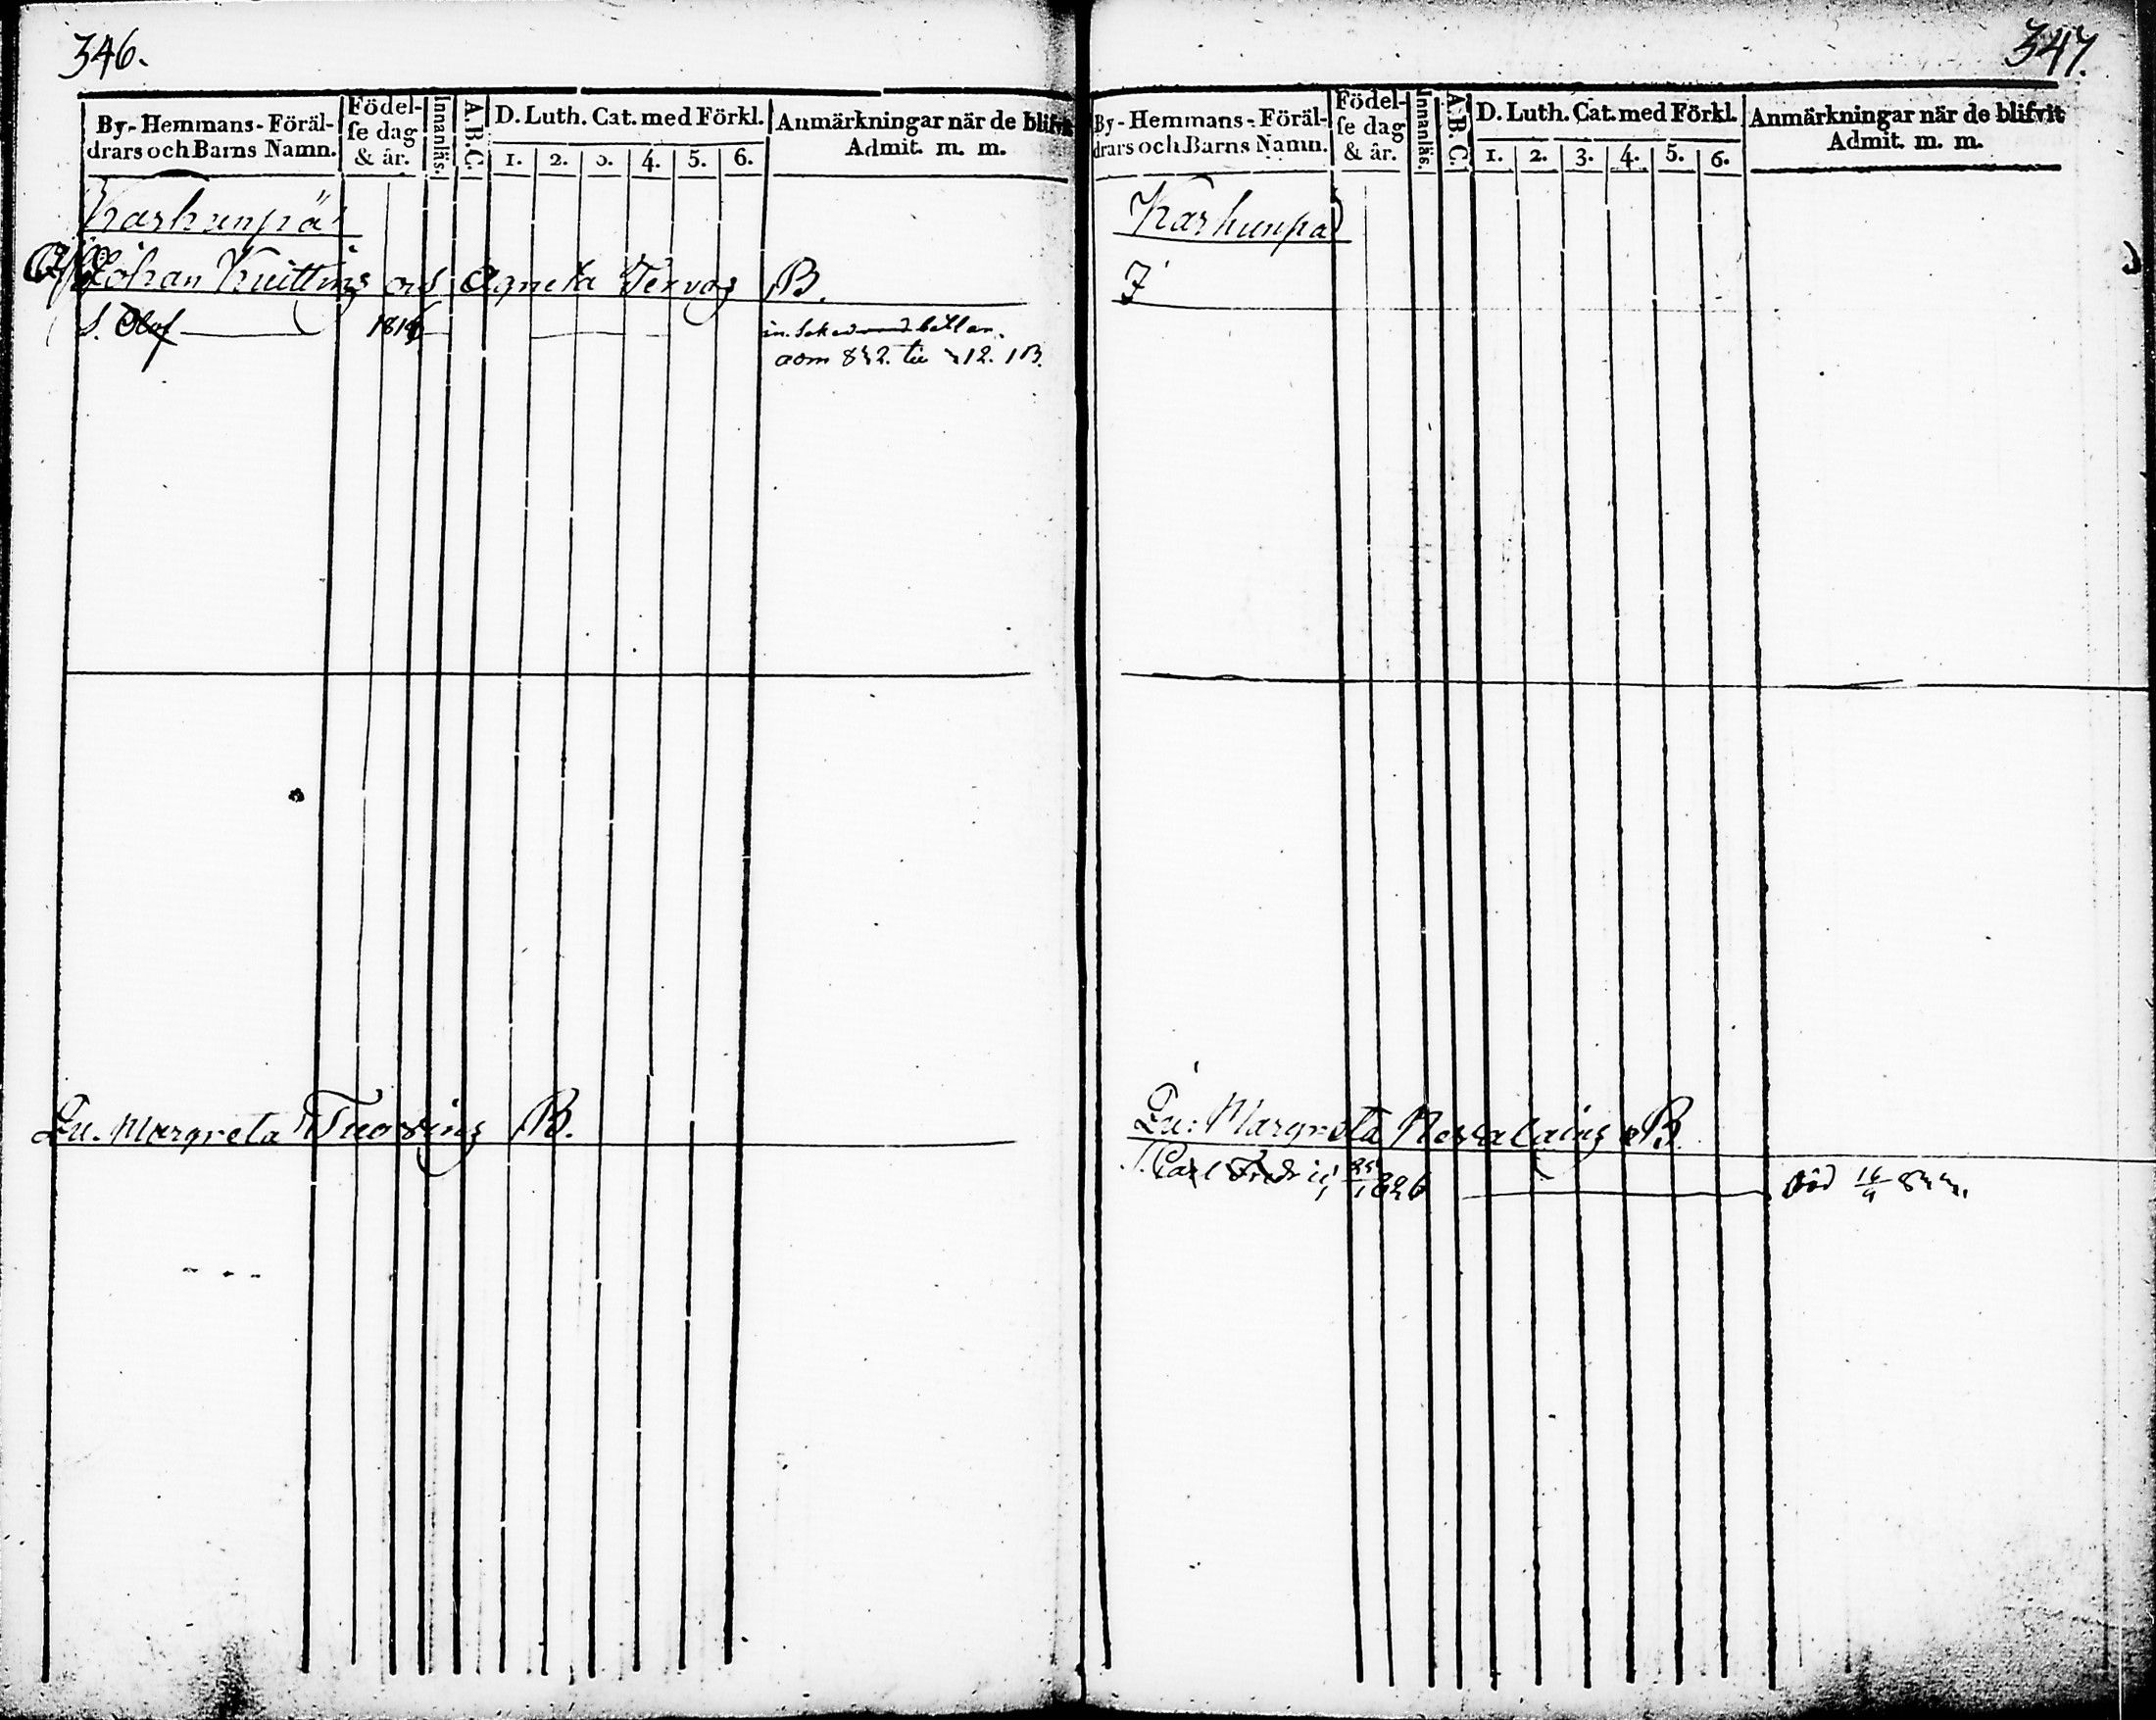 346.
By- Hemmans- Föräl-
drars och Barns Namn.
Födel-
se dag
& år.
Innanläs.
A.B.C.
D. Luth. Cat. med Förkl.
1. 2. 3. 4. 5. 6.
Anmärkningar när de blifvit
Admit. m. m.
Karhunpä
Johan Kuitting Agneta Tervog B.
S. Olof 1816
Eu. Margreta Tuoving B.
347.
By- Hemmans- Föräl-
drars och Barns Namn.
Födel-
se dag
& år.
Innanläs.
A.B.C.
D. Luth. Cat. med Förkl.
1. 2. 3. 4. 5. 6.
Anmärkningar när de blifvit
Admit. m. m.
Karhunpä
Eu: Margreta B.
S. Carl Fredric 1826 död 16/9